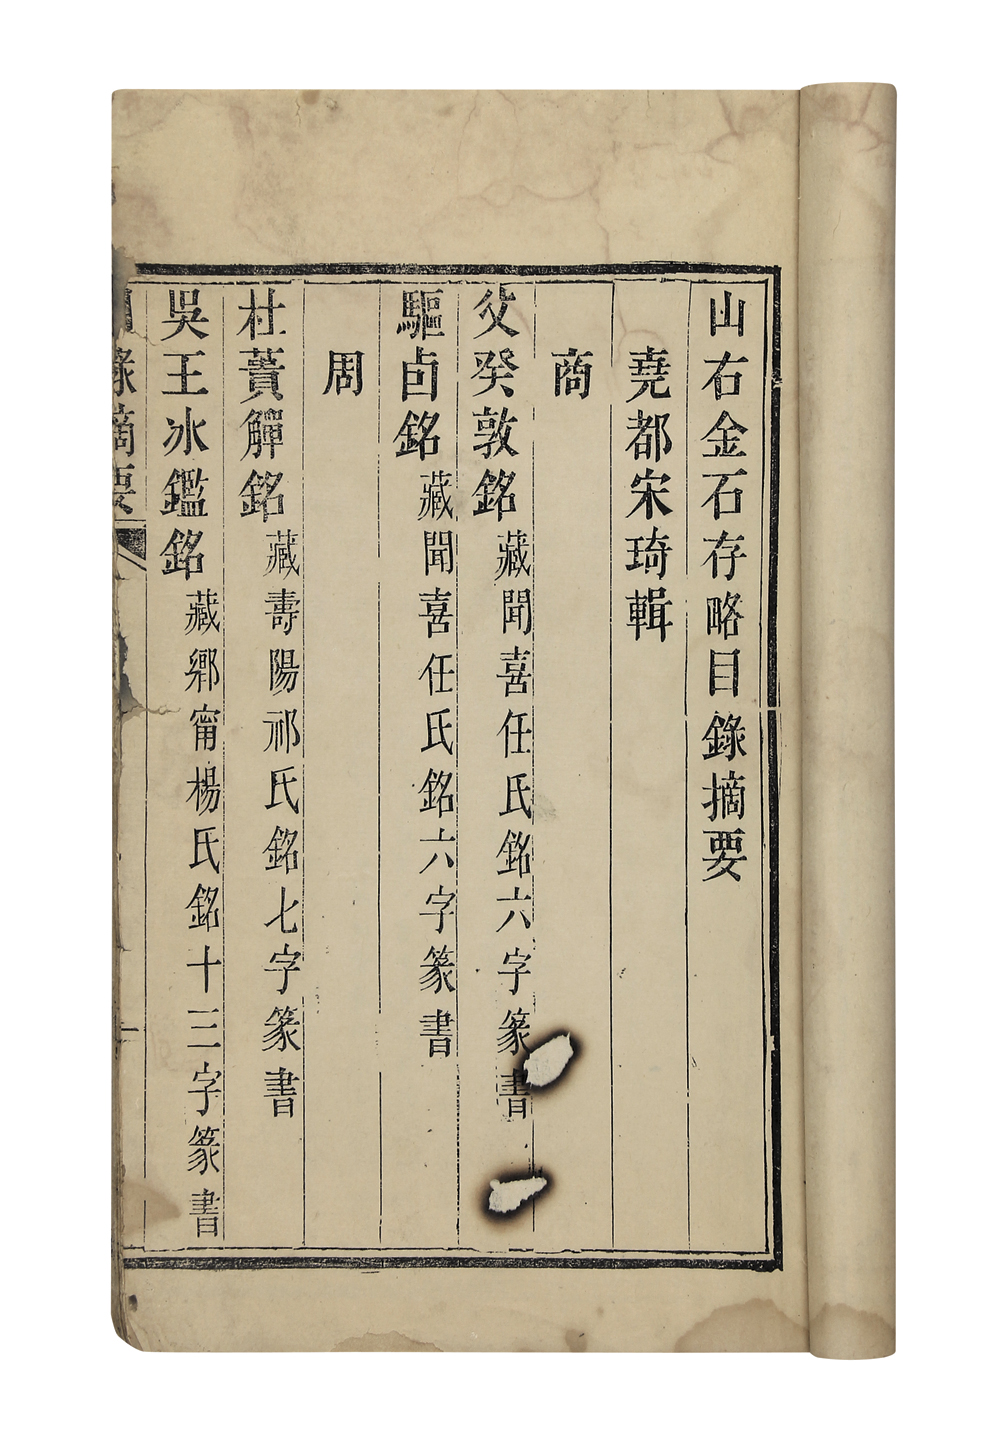 山右金石存略目錄摘要
堯都宋琦輯
商
父癸敦銘藏聞喜任氏銘六字篆書
驅卣銘藏聞喜任氏銘六字篆書
周
杜蕢觶銘藏壽陽祁氏銘七字篆書
吳王冰鑑銘藏鄉甯楊氏銘十三字篆書
目錄摘要
一